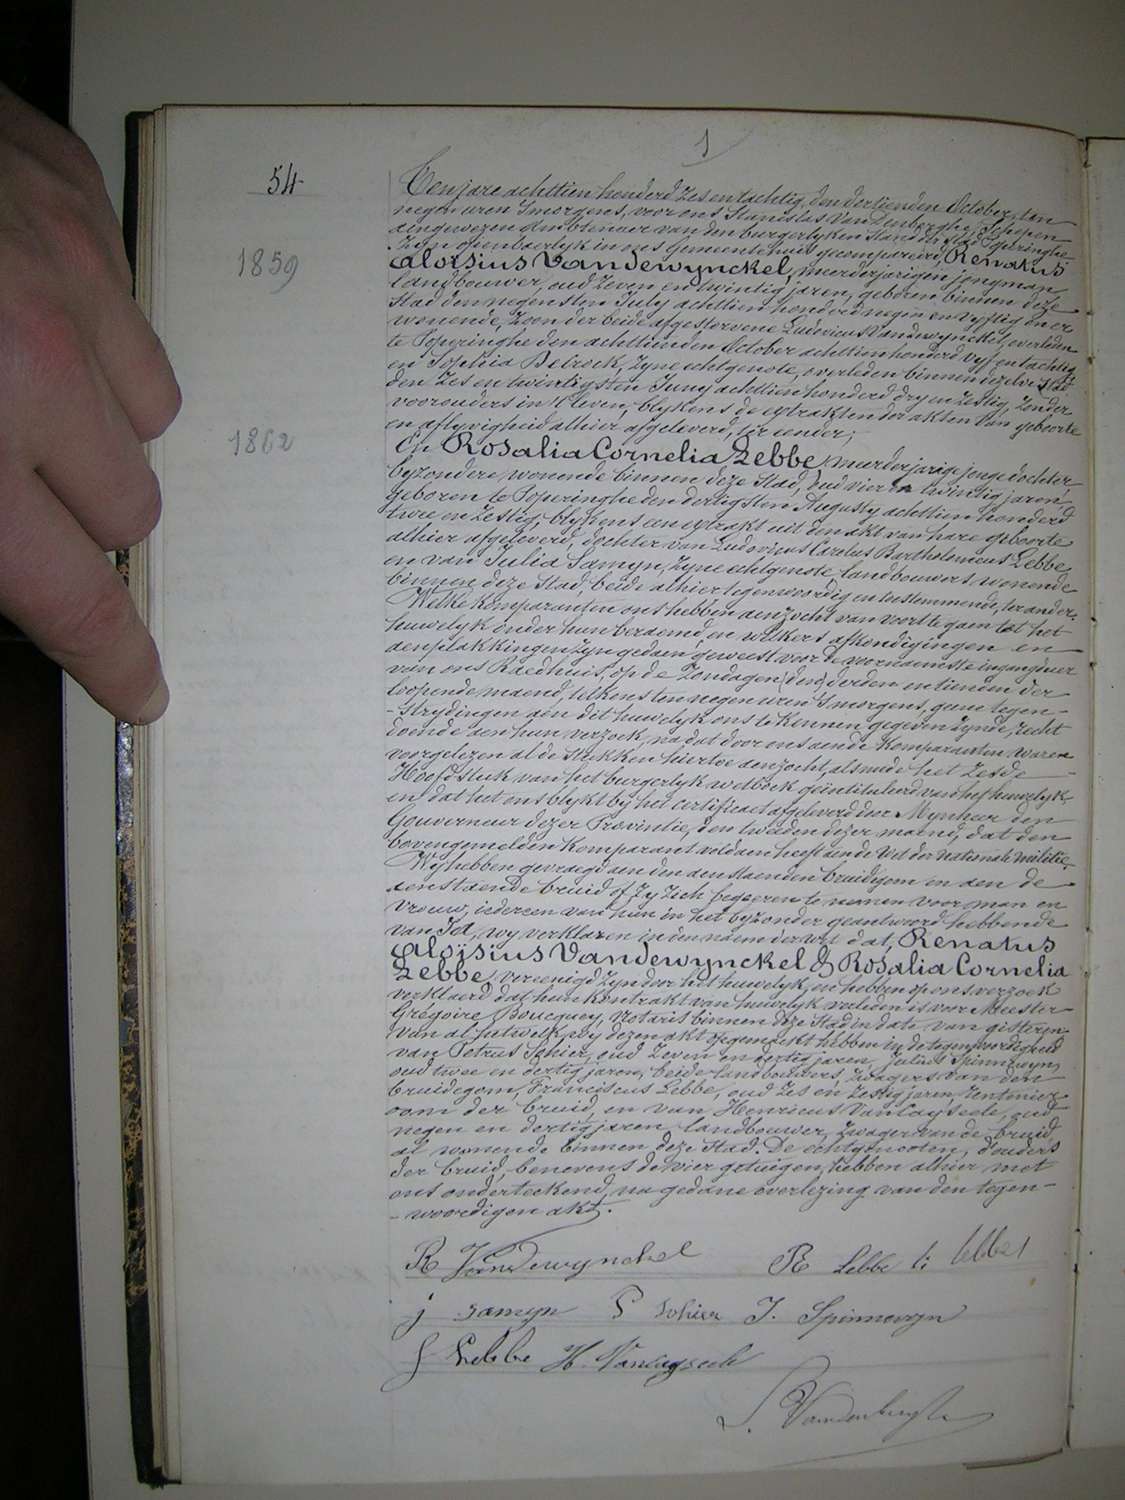 1
54
Ten jare achttien honderd zes en tachtig, den dertienden October, ten
negen uren 's morgens, voor ons Stanislas Van Denberghe, Schepen
aengewezen Ambtenaer van den burgerlyken Stand der Stad Poperinghe
zyn openbaerlyk in ons Gemeentehuis gecompareerd, Renatus
1859
Aloïsius Vandewynckel, meerderjarigen jongman
landbouwer, oud zeven en twintig jaren, geboren binnen deze
Stad den negensten July achttien honderd negen en vyftig en er
wonende, zoon der beide afgestorvene Ludovicus Vandewynckel, overleden
te Poperinghe den achttienden October achttien honderd vyf en tachtig
en Sophia Delrock, zyne echtgenote, overleden binnen dezelve Stad
den zes en twintigsten Juny achttien honderd dry en zestig, zonder
voorouders in 't leven, blykens de extrakten der akten van geboorte
en aflyvigheid alhier afgeleverd, ter eender;
1862
En Rosalia Cornelia Lebbe, meerderjarige jonge dochter
byzondere, wonende binnen deze Stad, oud vier en twintig jaren,
geboren te Poperinghe den dertigsten Augusty achttien honderd
twee en zestig, blykens een extrakt uit den akt van hare geboorte
alhier afgeleverd, dochter van Ludovicus Carolus Bartholomeus Lebbe
en van Julia Samyn, zyne echtgenote landbouwers wonende
binnen deze Stad, beide alhier tegenwoordig en toestemmende, ter ander.
Welke komparanten ons hebben aenzocht van voort te gaen tot het
huwelyk onder hun beraemd, en welkers afkondigingen en
aenplakkingen zyn gedaen geweest voor de voornaemste ingangdeur
van ons Raedhuis, op de Zondagen (den) derden en tienden der
loopende maend, telkens ten negen uren 's morgens, geene tegen-
-strydingen aen dit huwelyk ons te kennen gegeven zynde, recht
doende aen hun verzoek, na dat door ons aen de komparanten waren
voorgelezen al de stukken hiertoe aenzocht, alsmede het zesde
Hoofdstuk van het burgerlyk wetboek geïntituleerd van het huwelyk,
en dat het ons blykt by het certificaet afgeleverd door Mynheer den
Gouverneur dezer Provintie, den tweeden dezer maend, dat den
bovengemelden komparant voldaen heeft aen de Wet der nationale militie.
Wy hebben gevraegd aen den aenstaenden bruidegom en aen de
aenstaende bruid of zy zich begeeren te nemen voor man en
vrouw, iedereen van hun in het byzonder geantwoord hebbende
van Ja, wy verklaren in den naem der wet dat, Renatus
Aloïsius Vandewynckel & Rosalia Cornelia
Lebbe, vereenigd zyn door het huwelyk, en hebben op ons verzoek
verklaerd dat hun kontrakt van huwelyk verleden is voor Meester
Grégoire Boucquey, Notaris binnen deze Stad in date van gisteren
Van al hetwelk wy dezen akt opgemaekt hebben in de tegenwoordigheid
van Petrus Sohier, oud zeven en dertig jaren, Julius Spinnewyn,
oud twee en dertig jaren, beide landbouwers, zwagers van den
bruidegom, Franciscus Lebbe, oud zes en zestig jaren, rentenier
oom der bruid, en van Henricus Vancayseele, oud
negen en dertig jaren, landbouwer, zwager van de bruid,
al wonende binnen deze Stad. De echtgenooten, d'ouders
der bruid, benevens de vier getuigen, hebben alhier met
ons onderteekend, na gedane overlezing van den tegen-
-woordigen akt.
R Vandewynckel R Lebbe Lebbe
j samyn P Sohier J. Spinnewyn
f Lebbe H. Vancayseele
S. Vandenberghe